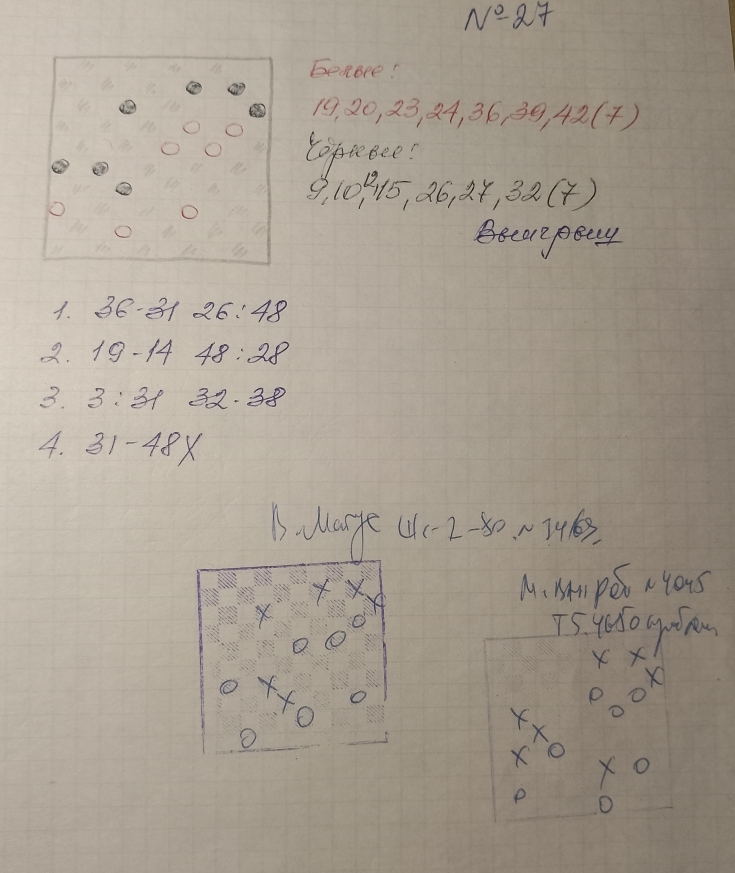 № 27
Белые:
19, 20, 23, 24, 36, 39, 42 (7)
Чёрные:
9, 10, 12, 15, 26, 27, 32 (7)
Выигрыш
1. 36-31 26:48
2. 19-14 48:28
3. 3:31 32-38
4. 31-48X
В. Матус
М.